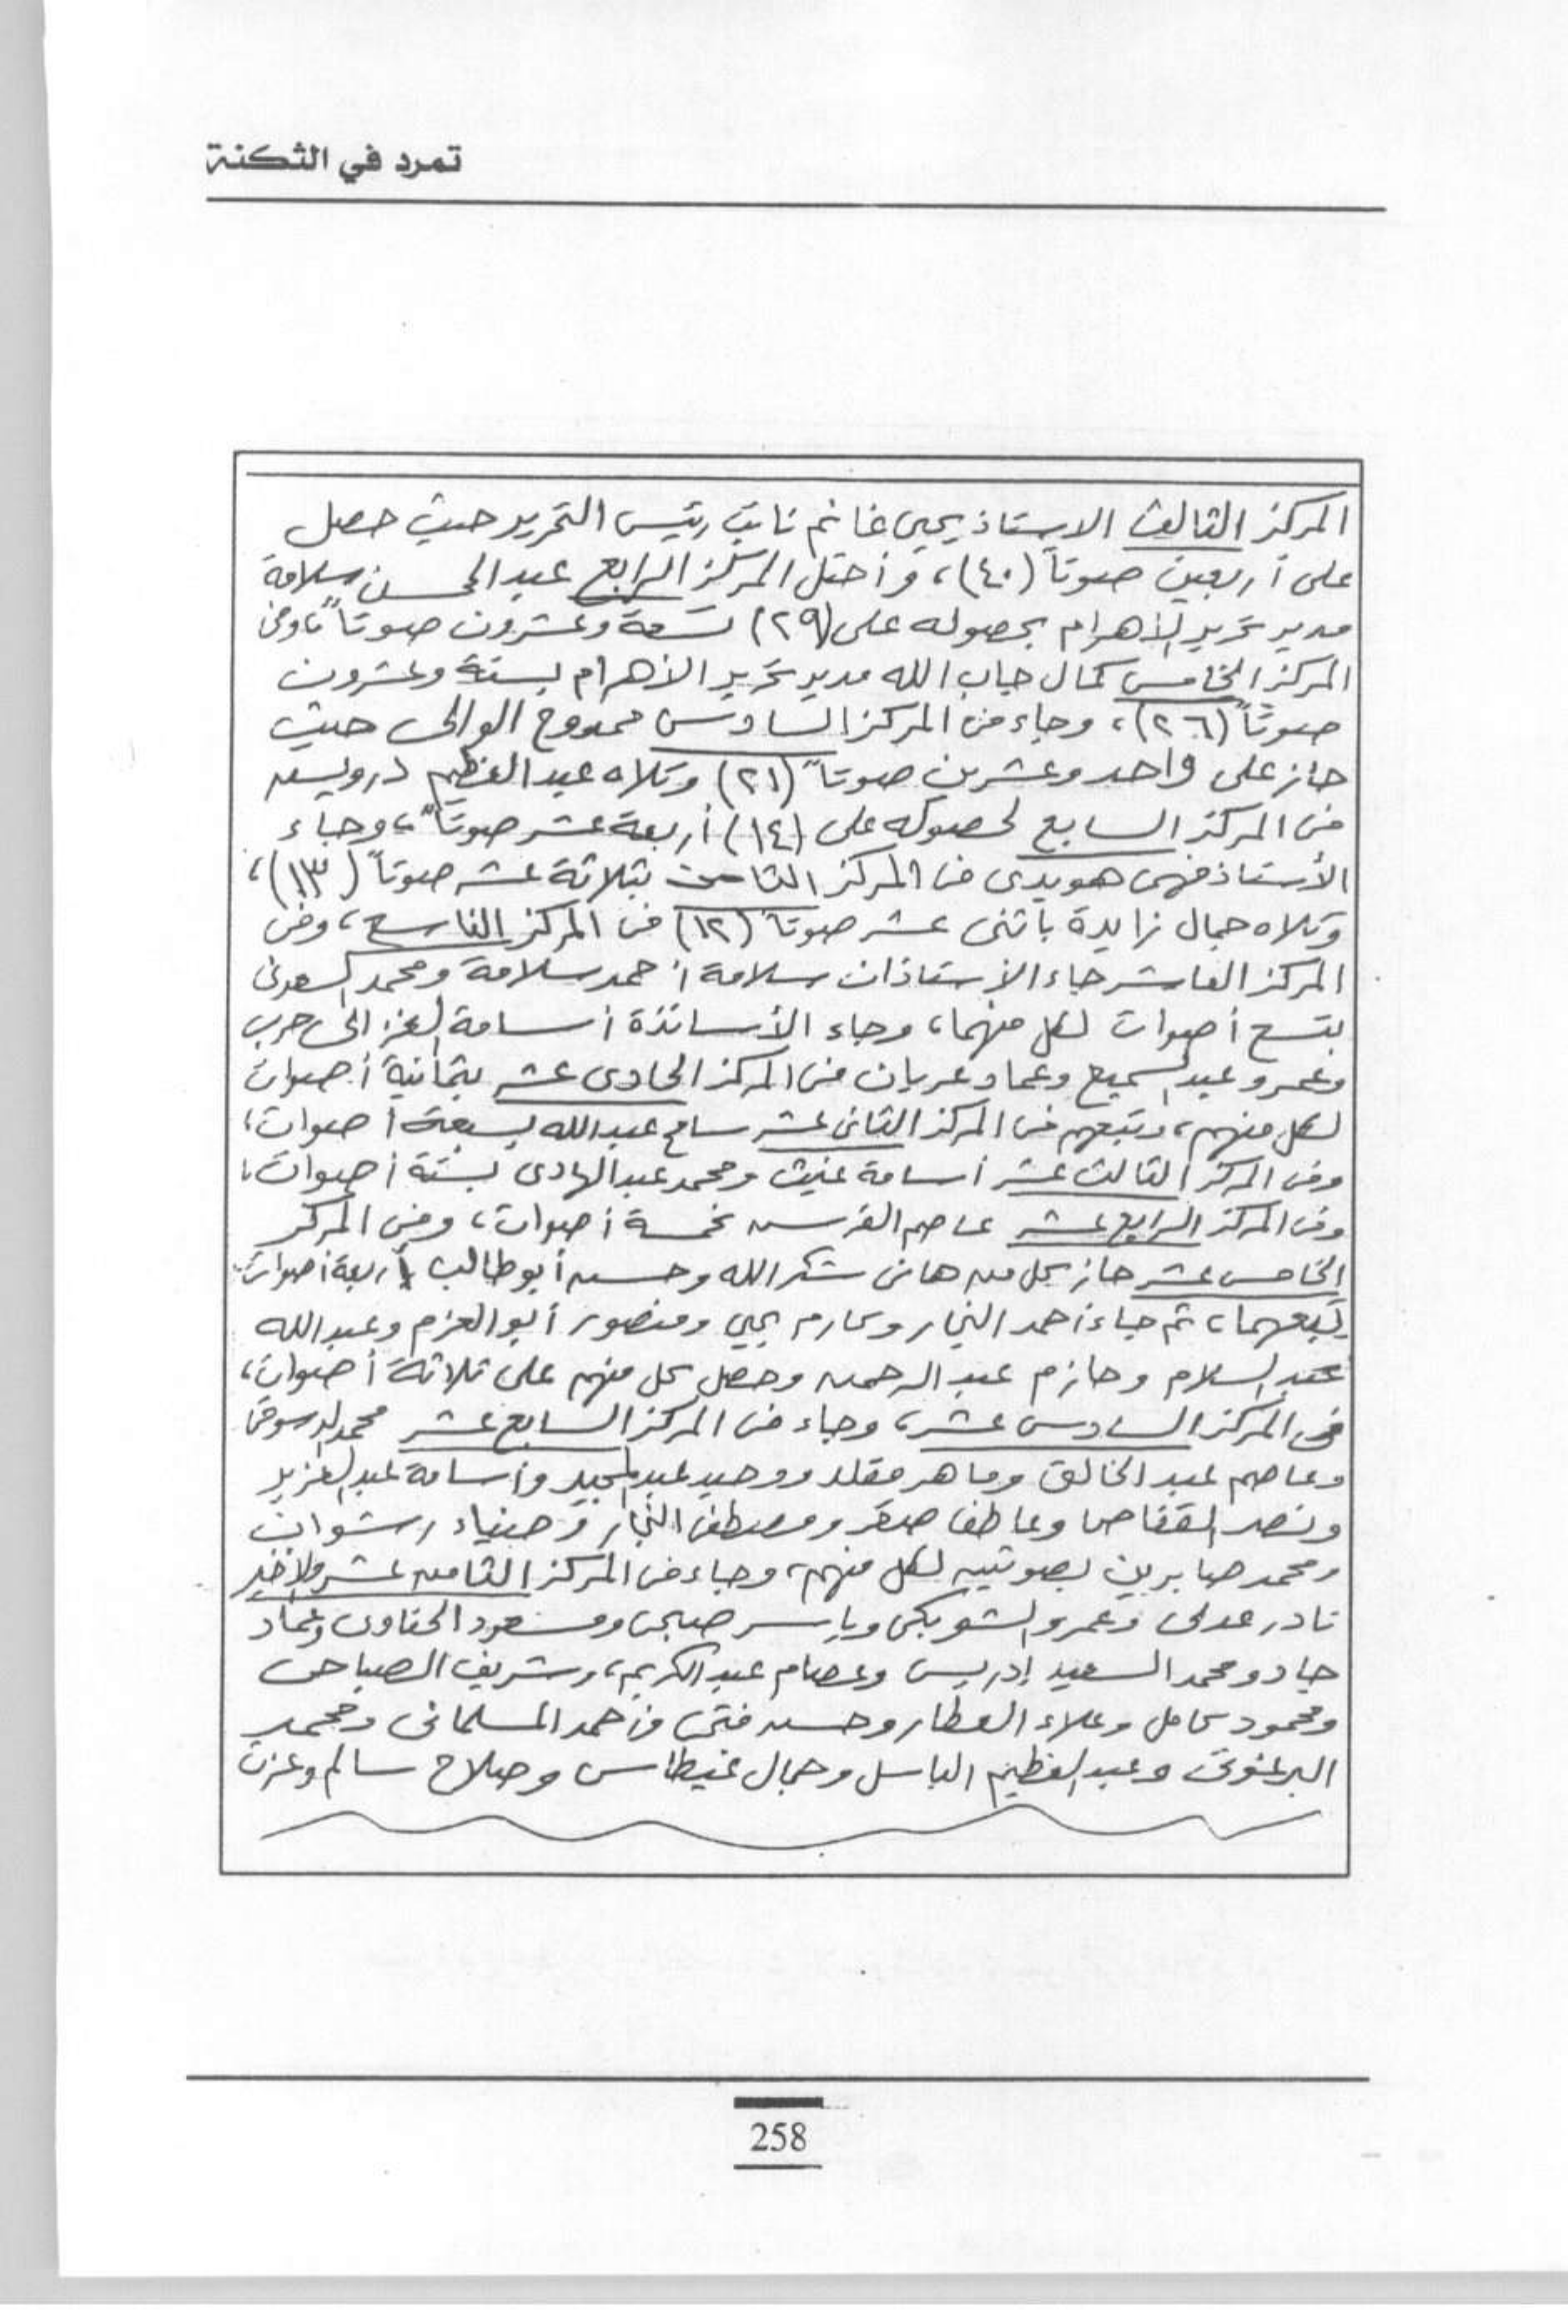 تمرد في الثكنة
المركز الثالث الاستاذ يحيى غانم نائب رئيس التحرير حيث حصل
على أربعين صوتاً (٤٠)، وأحتل المركز الرابع عبد المحسن سلامة
مدير تحرير الأهرام بحصوله على (٢٩) تسعة وعشرون صوتاً، وفى
المركز الخامس كمال جاب الله مدير تحرير الأهرام بستة وعشرون
صوتاً (٢٦)، وجاء فى المركز السادس ممدوح الوالى حيث
حاز على واحد وعشرين صوتاً (٢١) وتلاه عبد العظيم درويش
فى المركز السابع لحصوله على (١٤) أربعة عشر صوتاً، وجاء
الأستاذ فهمى هويدى فى المركز الثامن بثلاثة عشر صوتاً (١٣)،
وتلاه جمال زايدة باثنى عشر صوتاً (١٢) فى المركز التاسع، وفى
المركز العاشر جاء الأستاذان سلامة أحمد سلامة ومحمد السعدنى
بتسع أصوات لكل منهما، وجاء الأساتذة أسامة الغزالى حرب
وعمرو عبد السميع وعماد عريان فى المركز الحادى عشر بثمانية أصوات
لكل منهم، وتبعهم فى المركز الثانى عشر سامح عبد الله بسبعة أصوات،
وفى المركز الثالث عشر أسامة غيث ومحمد عبد الهادى بستة أصوات،
وفى المركز الرابع عشر عاصم القرش خمسة أصوات، وفى المركز
الخامس عشر حاز كل من هانى شكر الله وحسن أبو طالب أربعة أصوات
يتبعهما، ثم جاء أحمد النجار وكارم يحيى ومنصور أبو العزم وعبد الله
عبد السلام وحازم عبد الرحمن وحصل كل منهم على ثلاثة أصوات،
فى المركز السادس عشر، وجاء فى المركز السابع عشر محمد الدسوقى
وعاصم عبد الخالق وماهر مقلد ووحيد عبد المجيد وأسامة عبد العزيز
ونصر القفاص وعاطف صقر ومصطفى النجار وضياء رشوان
ومحمد صابرين بصوتين لكل منهم، وجاء فى المركز الثامن عشر والأخير
نادر عدلى وعمرو الشوبكى وياسر صبحى ومسعود الحناوى وعماد
جاد ومحمد السعيد إدريس وعصام عبد الكريم، وشريف الصباحى
ومحمود كامل وعلاء العطار وحسن فتحى وأحمد المسلمانى ومحمد
البرغوتى وعبد العظيم الباسل وجمال غيطاس وصلاح سالم وعزت
258